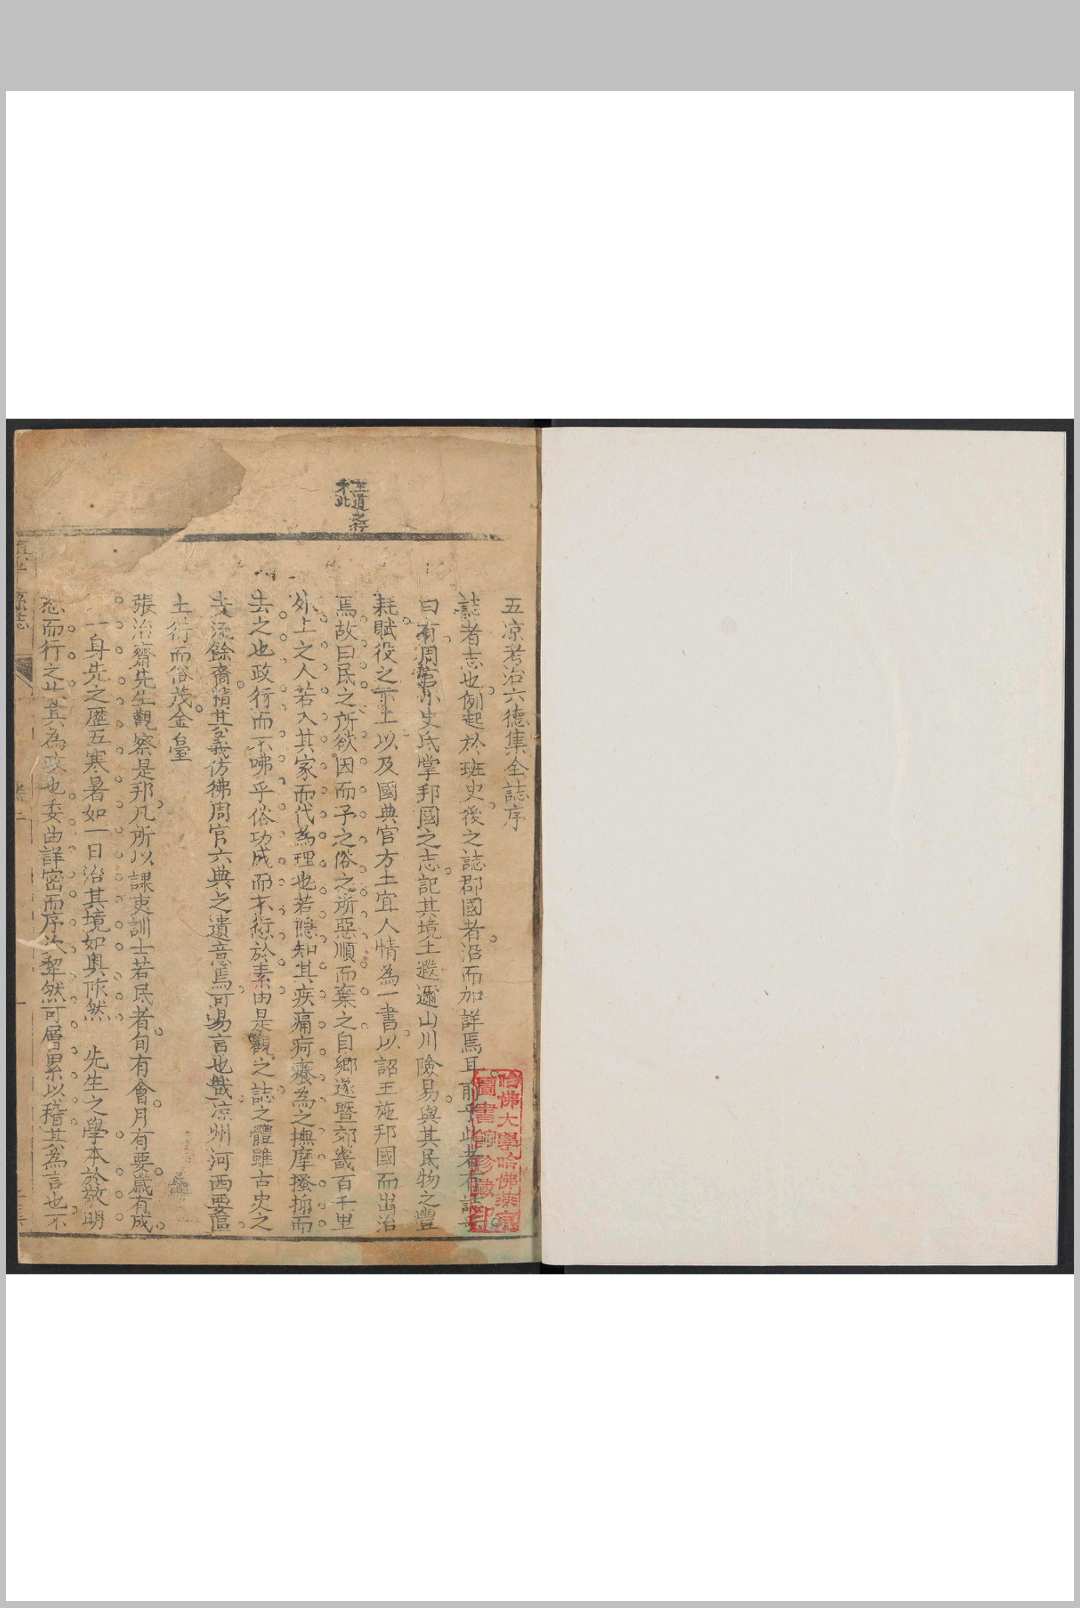 五凉考治六德集全誌序
誌者志也例起於班史後之誌郡國者沿而加詳焉耳前乎此者不
曰有周小史氏掌邦國之志記其境土遐邇山川險易與其民物之豐
耗賦役之下上以及國典官方土宜人情為一書以詔王施邦國而出治
焉故曰民之所欲因而予之俗之所惡順而棄之自鄉遂暨郊畿百千里
外上之人若入其家而代為理也若隐知其疾痛疴癢為之撫摩搔抑而
去之也政行而不咈乎俗功成而不愆於素由是觀之誌之體雖古史之
支流餘裔精其義仿彿周官六典之遺意焉可易言也哉凉州河西要區
土衍而俗茂金臺
張治齋先生觀察是邦凡所以課吏訓士若民者旬有會月有要歲有成
一身先之歷五寒暑如一日治其境如奥阼然 先生之學本於敬明
恕而行之其為政也委曲詳密而序次犂然可層累以稽其為言也不
王道之行
才此
哈佛大學哈佛燕京
圖書館珍藏印